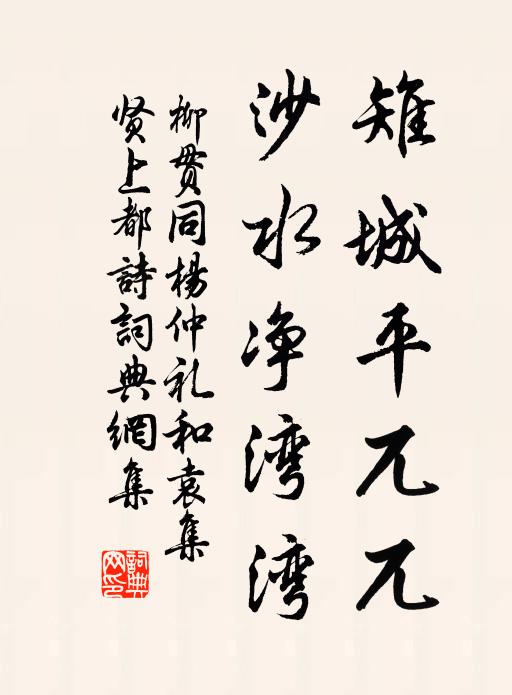 雉城平兀兀
沙水净湾湾
柳貫同楊仲礼和袁集
贤上都詩詞典網集
詞典网印